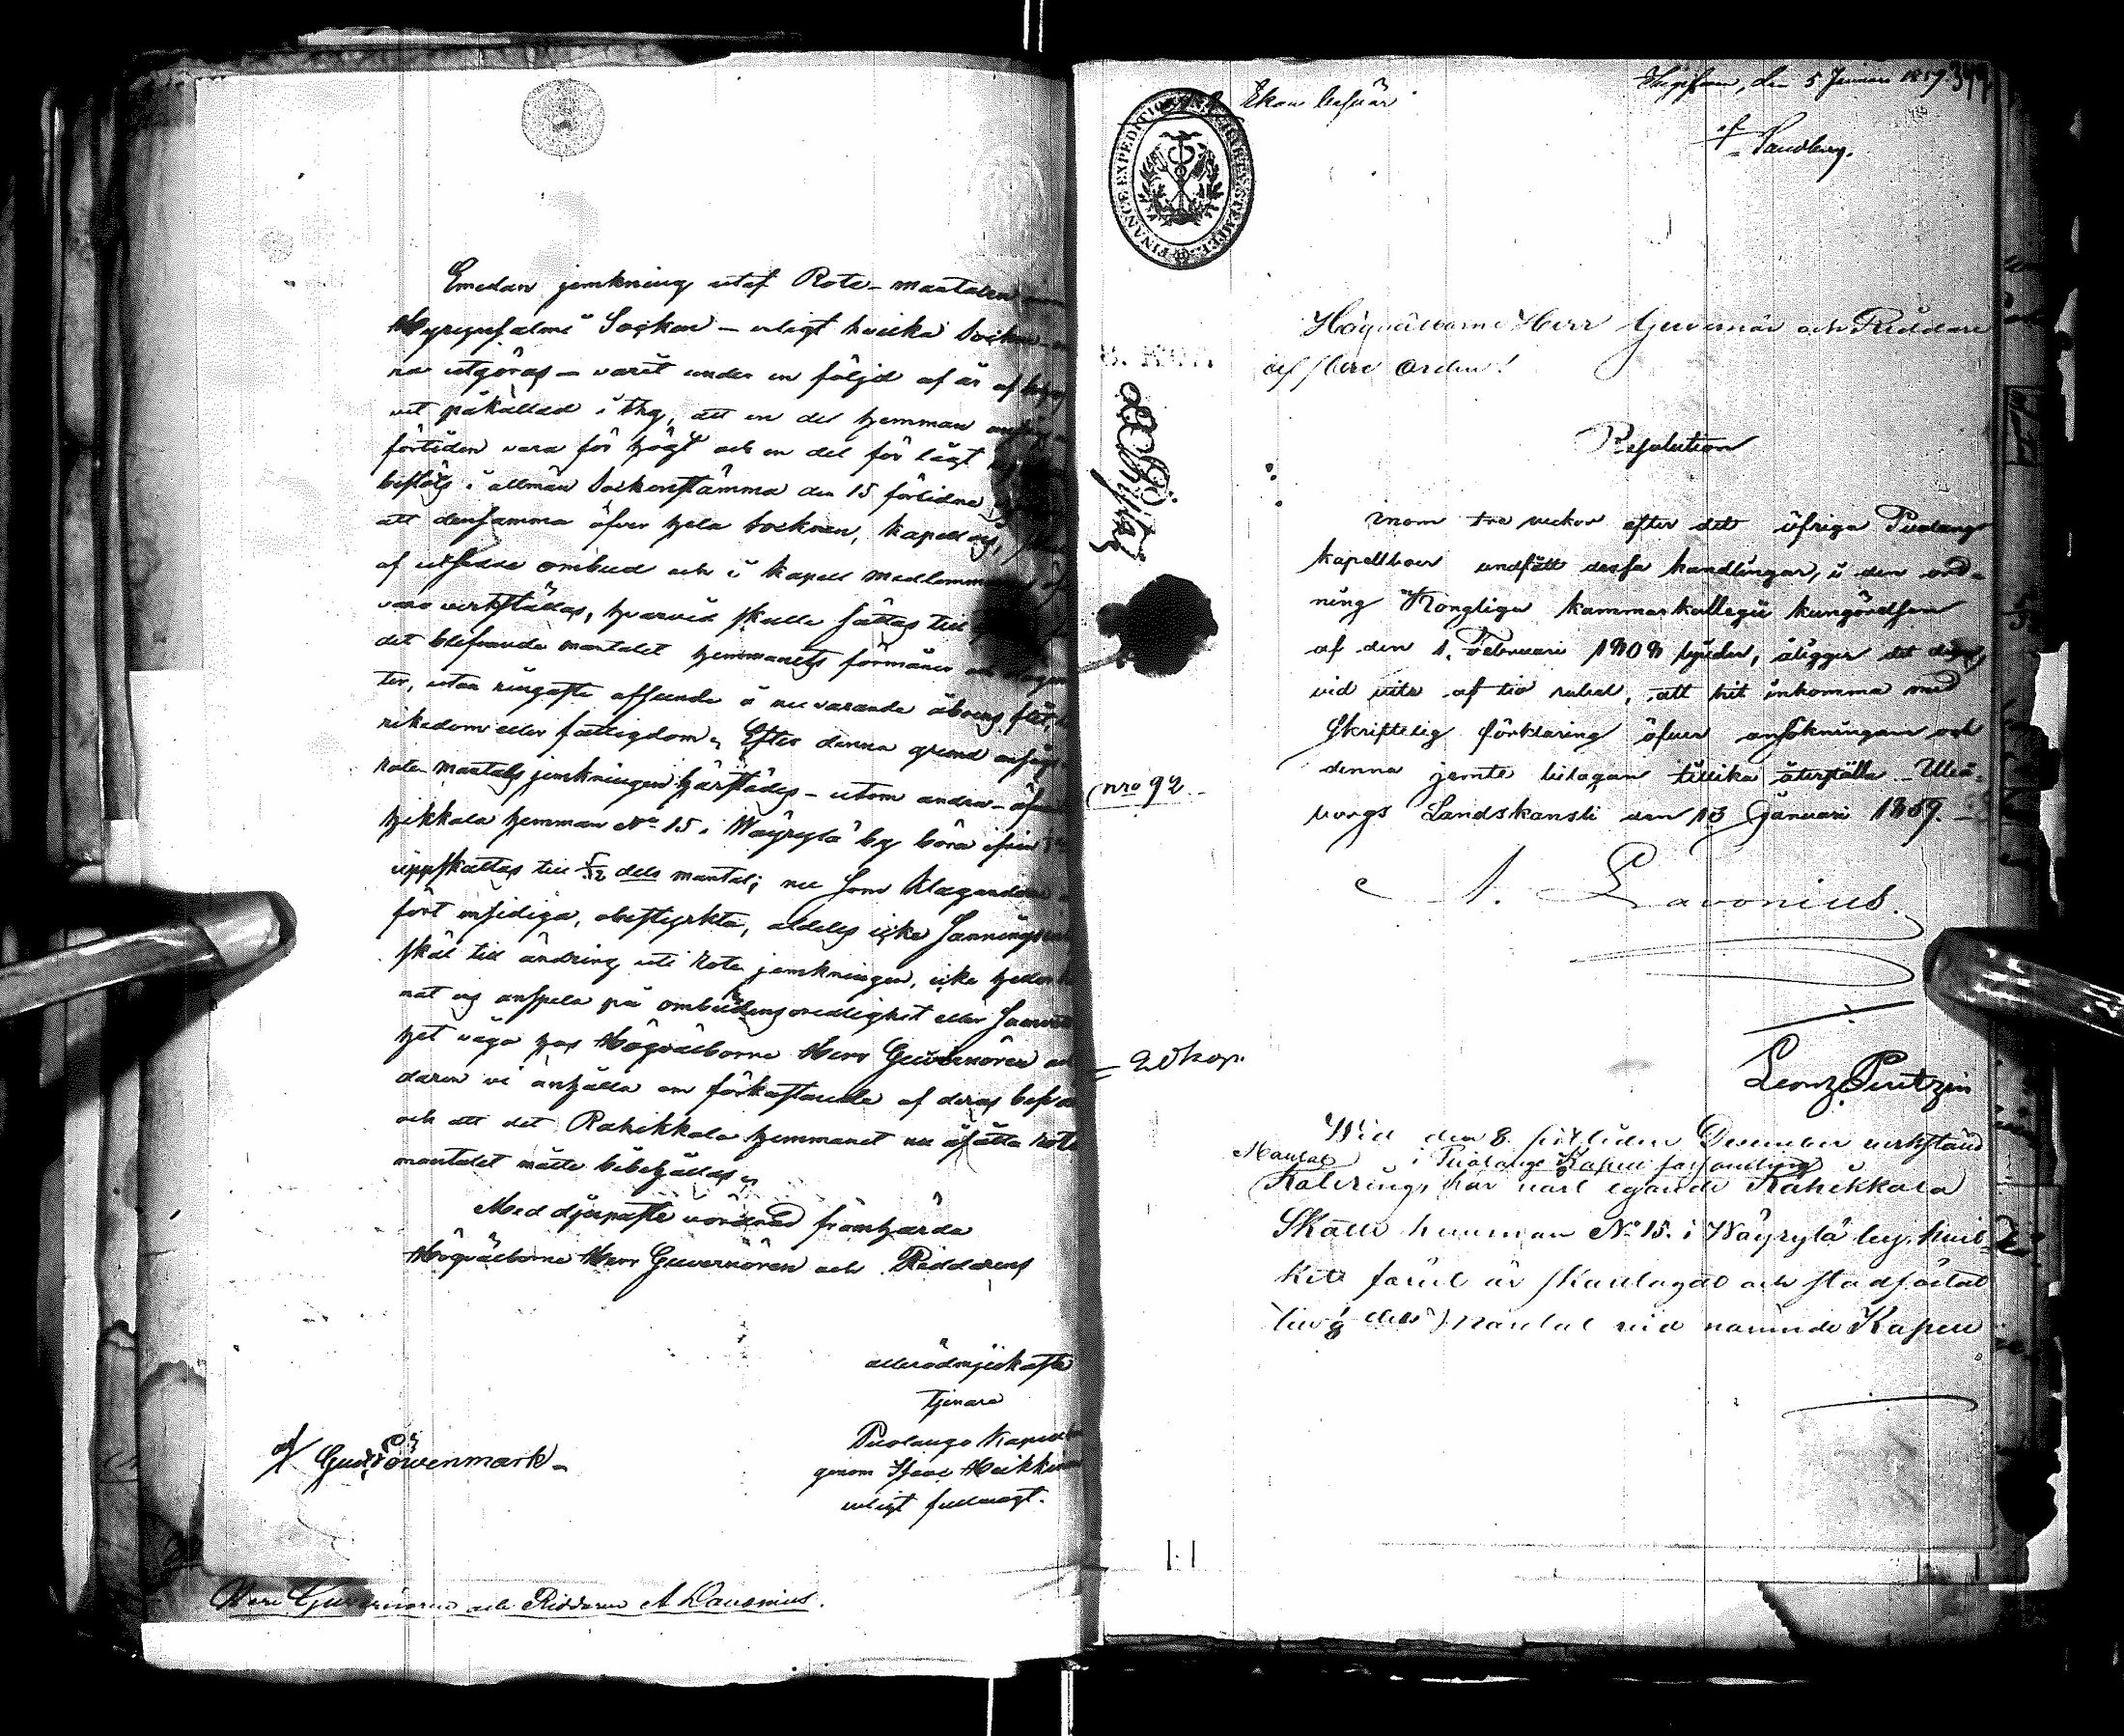 Emedan jemkning utaf Rote-mantalen
Hyrynsalmi Socken – enligt hvilka Socken
na utgöras – varit under en följd af år af
vet påkallad i thy, att en del hemman
förtiden vara för högt och en del för lågt
beslöts i allmän Sockenstämma den 15 förlidne
att densamma öfver hela Socknen, kapellvis,
af utsedde ombud och i kapell medlemmar
varo verkställas, hvarvid skulle sättas till
det blifvande mantalet hemmanets förmåner och
ter, utan ringaste afseende å nuvarande åboens flit,
rikedom eller fattigdom. Efter denna grund
rote-mantals jemkningen härstädes – utom andra –
hikkala hemman No 15 i Wäyrylä by böra ifrån
uppskattas till 5/12 dels mantal; nu som klaganden
fört ensidiga, obestyrkta, aldeles icke sannings
skäl till ändring uti rote jemkningen, icke heller
nat sig anspela på ombudens oredlighet eller
het våga hos Högvälborne Herr Guvernören
daren vi anhålla om förkastande af deras besvär
och att det Rahikkala hemmanet nu åsätta rote
mantalet måtte bibehållas.
Med djupaste vördnad framhärda
Högvälborne Herr Guvernören och Riddarens
allraödmjukaste
tjenare
Puolango Kapell
genom Isaac Heikkinen
enligt fullmagt.
Gust: Löwenmark.
Herr Guvernören och Riddaren A Lavonius.
Ekon. besvär
den 5 Januari 1859
Sandberg.
FINANCE EXPEDITION
Högvälborne Herr Guvernör och Riddare
af flere Orden!
Resolution
inom tre veckor efter det öfrige Puolango
kapellboer undfått dessa handlingar, i den ord-
ning Kongliga kammarkollegii kungörelsen
af den 1. Februari 1808 bjuder, åligger det dem,
vid vite af tio rubel, att hit inkomma med
Skriftelig förklaring öfver ansökningen och
denna jemte bilagan tillika återställa. Uleå-
borgs Landskansli den 13 Januari 1859.
nro 92
A. Lavonius.
20 kop.
Vid den 8 förliden December verkställd
Mantal i Puolango Kapell församling
Skatte hemman No 15. i Wäyrylä by, hvil-
ket förut är skattlagdt och stadfästat
till 1/8 dels mantal vid nämnde Kapell